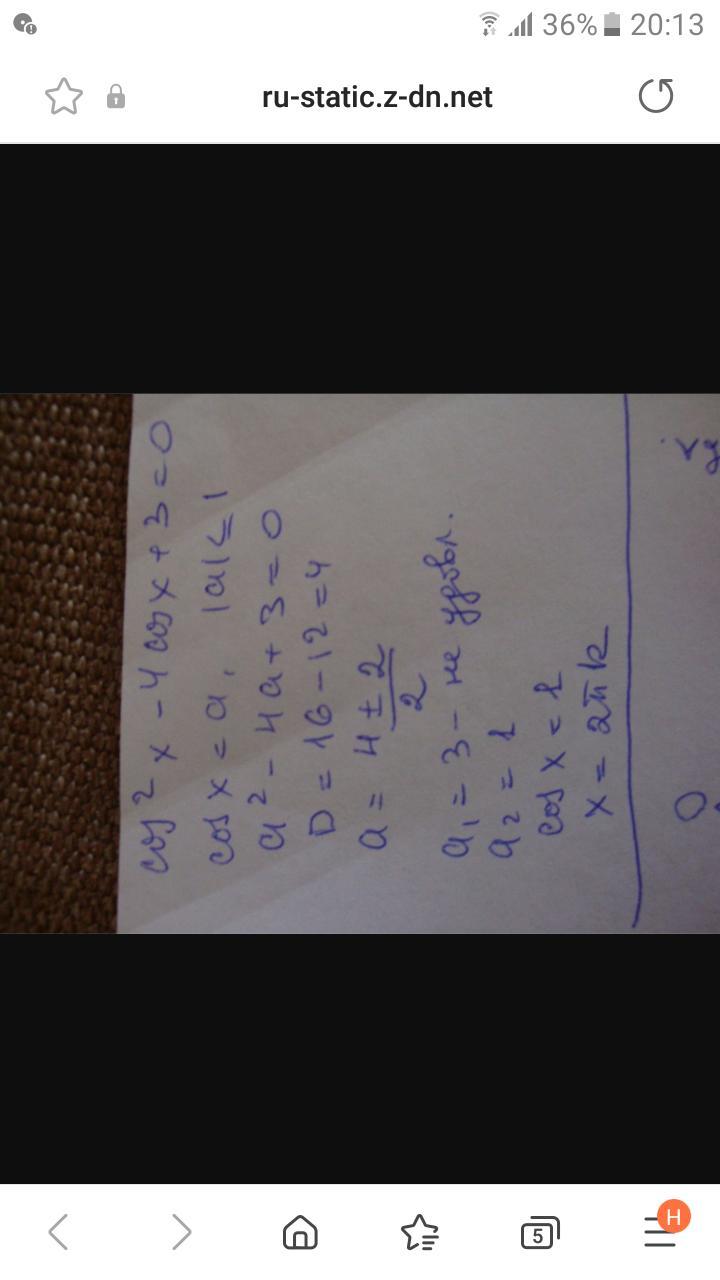 36% 20:13
ru-static.z-dn.net
cos² x - 4 cos x + 3 = 0
cos x = a, |a| ≤ 1
a² - 4a + 3 = 0
D = 16 - 12 = 4
a = 4 ± 2 / 2
a₁ = 3 - не удовл.
a₂ = 1
cos x = 1
x = 2πk
5
H